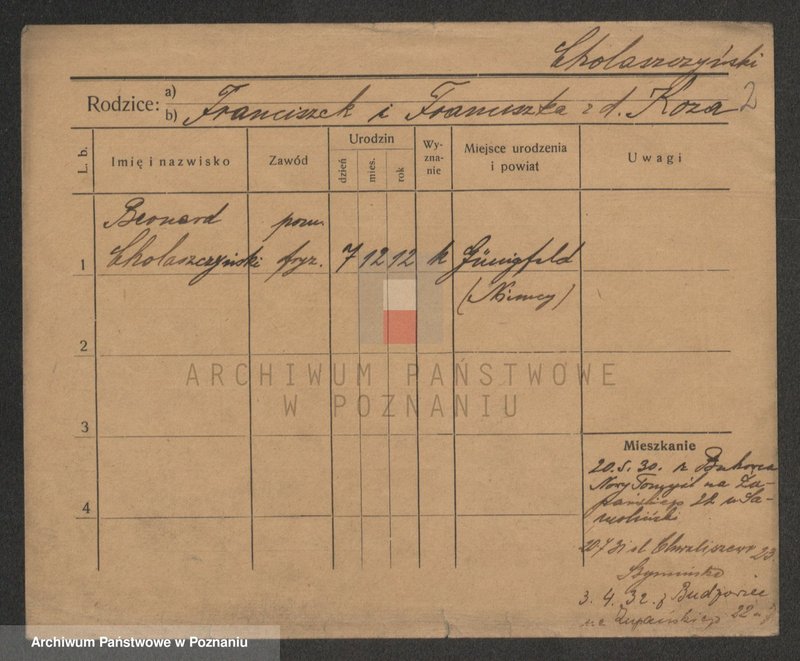 Cholaszczyński
Rodzice: a)
b) Franciszek i Franciszka z d. Koza 2
L. b. Imię i nazwisko Zawód Urodzin dzień mies. rok Wyznanie Miejsce urodzenia i powiat Uwagi
Leonard pom.
1 Cholaszczyński fryz. 7 12 12 k Günigfeld
(Niemcy)
2
ARCHIWUM PAŃSTWOWE
W POZNANIU
3
Mieszkanie
20.5.30. z Bukowca
Nowy Tomyśl na
22 u
4
31 Chwaliszewo 23
3. 4. 32. z
na Żupańskiego 22
Archiwum Państwowe w Poznaniu